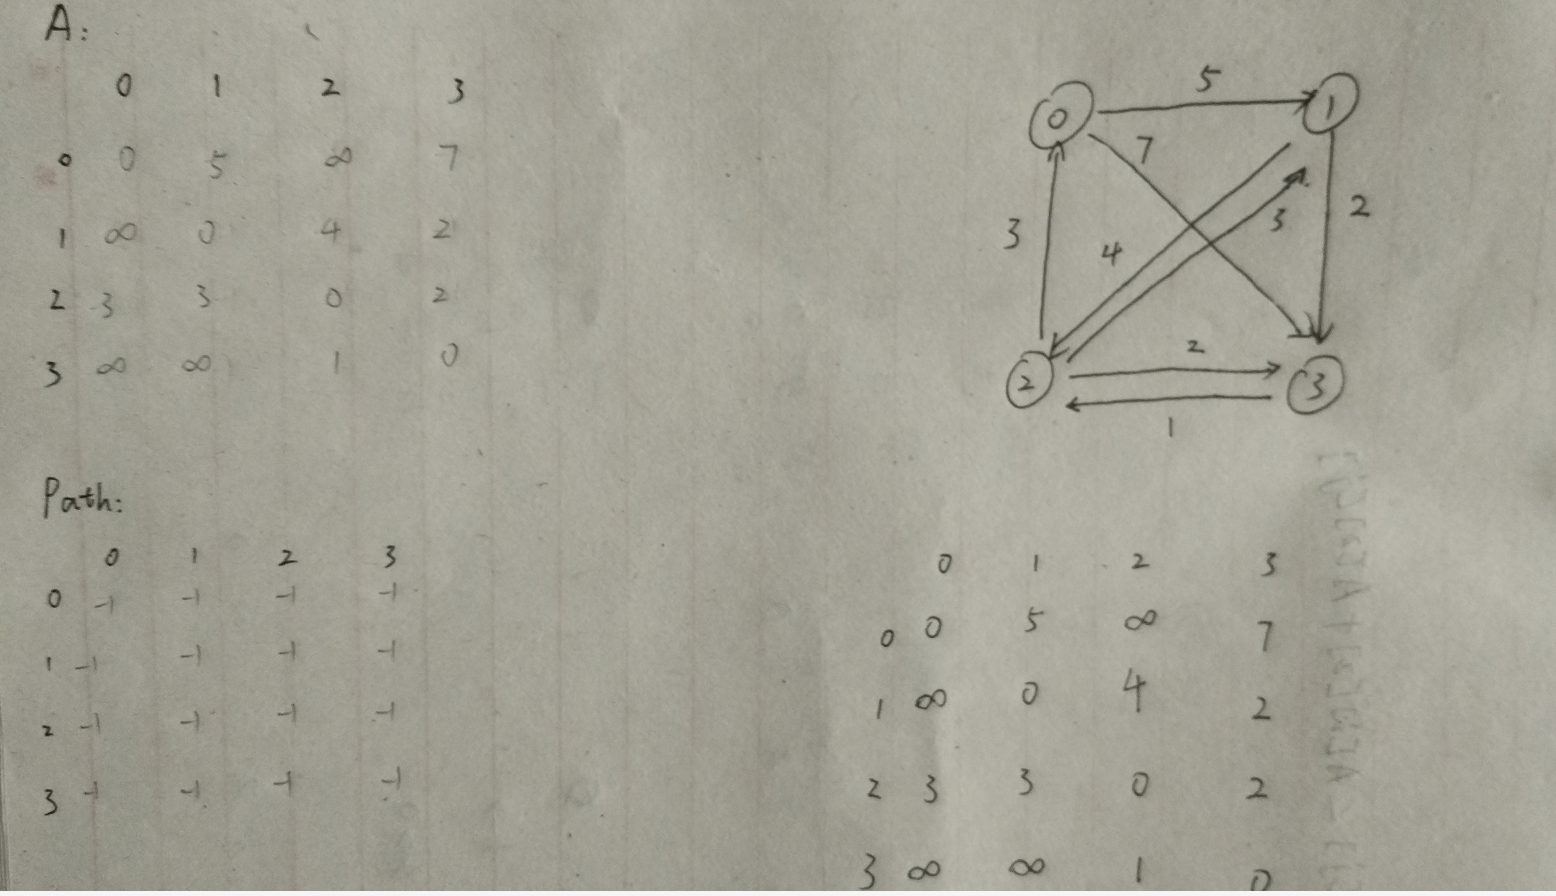 A:
0 1 2 3
0 0 5 ∞ 7
1 ∞ 0 4 2
2 3 3 0 2
3 ∞ ∞ 1 0
0 5 1
7
3 4 3 2
2 2 3
1
Path:
0 1 2 3
0 -1 -1 -1 -1
1 -1 -1 -1 -1
2 -1 -1 -1 -1
3 -1 -1 -1 -1
0 1 2 3
0 0 5 ∞ 7
1 ∞ 0 4 2
2 3 3 0 2
3 ∞ ∞ 1 0